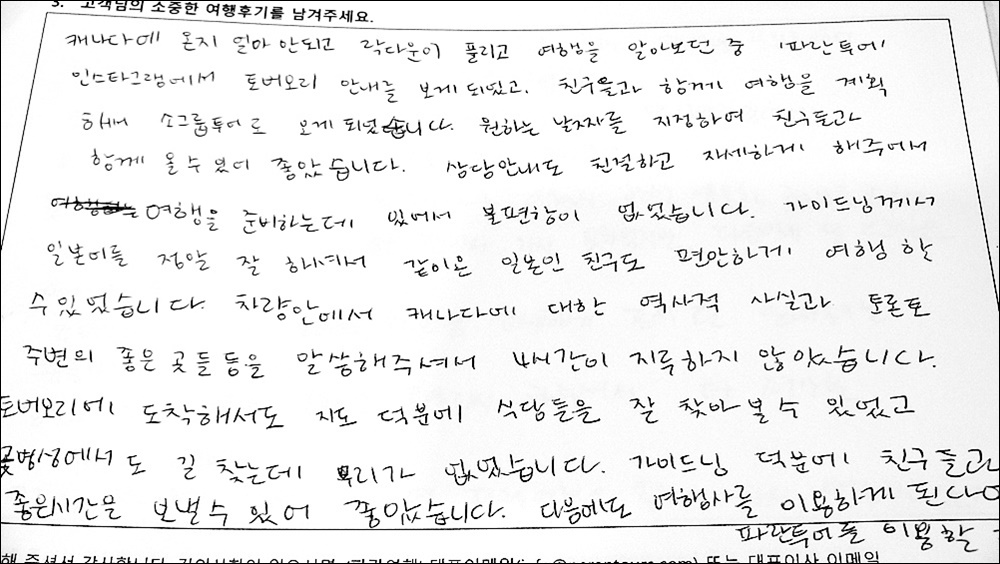 3. 고객님의 소중한 여행후기를 남겨주세요.
캐나다에 온지 얼마 안되고 락다운이 풀리고 여행을 알아보던 중 '파란투어'
인스타그램에서 토버모리 안내를 보게 되었고, 친구들과 함께 여행을 계획
해서 소그룹투어로 오게 되었습니다. 원하는 날짜를 지정하여 친구들과
함께 올 수 있어 좋았습니다. 상담안내도 친절하고 자세하게 해주에서
여행을 준비하는데 있에서 불편함이 없었습니다. 가이드님께서
일본어를 정말 잘 하셔서 같이온 일본인 친구도 편안하게 여행 할
수 있었습니다. 차량안에서 캐나다에 대한 역사적 사실과 토론토
주변의 좋은 곳들 등을 말씀해주셔서 4시간이 지루하지 않았습니다.
토버모리에 도착해서도 지도 덕분에 식당들을 잘 찾아 볼 수 있었고
꽃병섬에서도 길 찾는데 무리가 없었습니다. 가이드님 덕분에 친구들과
좋은시간을 보낼 수 있어 좋았습니다. 다음에도 여행사를 이용하게 된다
파란투어를 이용할